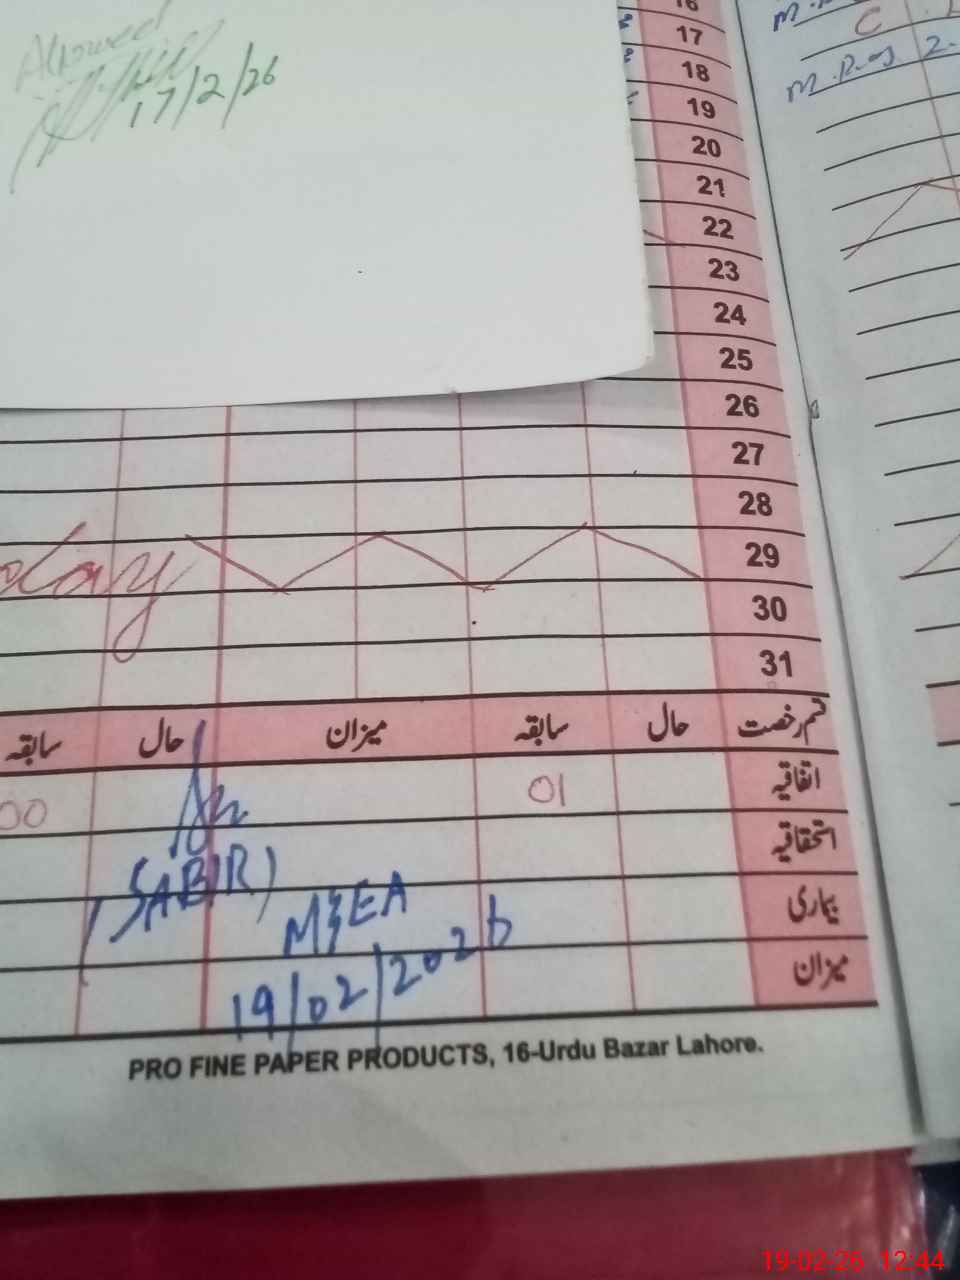 Allowed
17/2/26
16
17
18
19
20
21
22
23
24
25
26
27
28
29
30
31
قسم رخصت حال سابقہ میزان حال سابقہ
اتفاقیہ 01 00
استحقاقیہ
بیماری
میزان
(SABIR)
MSEA
19/02/2026
PRO FINE PAPER PRODUCTS, 16-Urdu Bazar Lahore.
C
2.
19-02-26 12:44